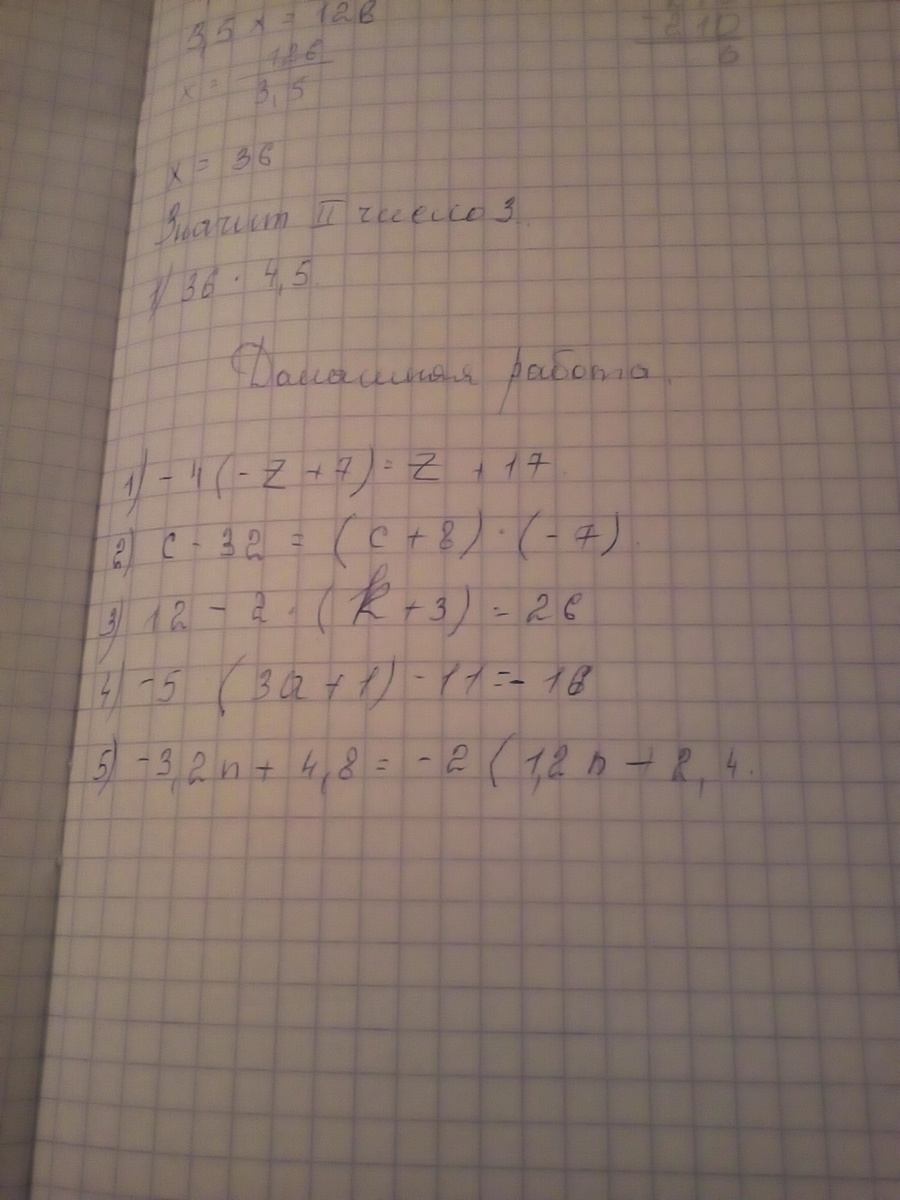 3,5 x = 126
210
x = 126/3,5
6
x = 36
Значит II число 3
1) 36 · 4,5
Домашняя работа.
1) - 4 (- z + 7) = z + 17
2) c - 32 = (c + 8) · (- 7)
3) 12 - 2 · (k + 3) = 26
4) -5 (3a + 1) - 11 = - 16
5) -3,2n + 4,8 = -2 (1,2n + 2,4.